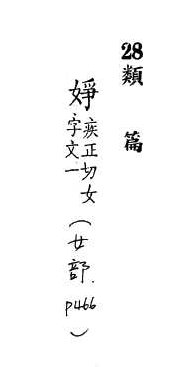 28類篇
婙疾正切女字文一(女部.p466)